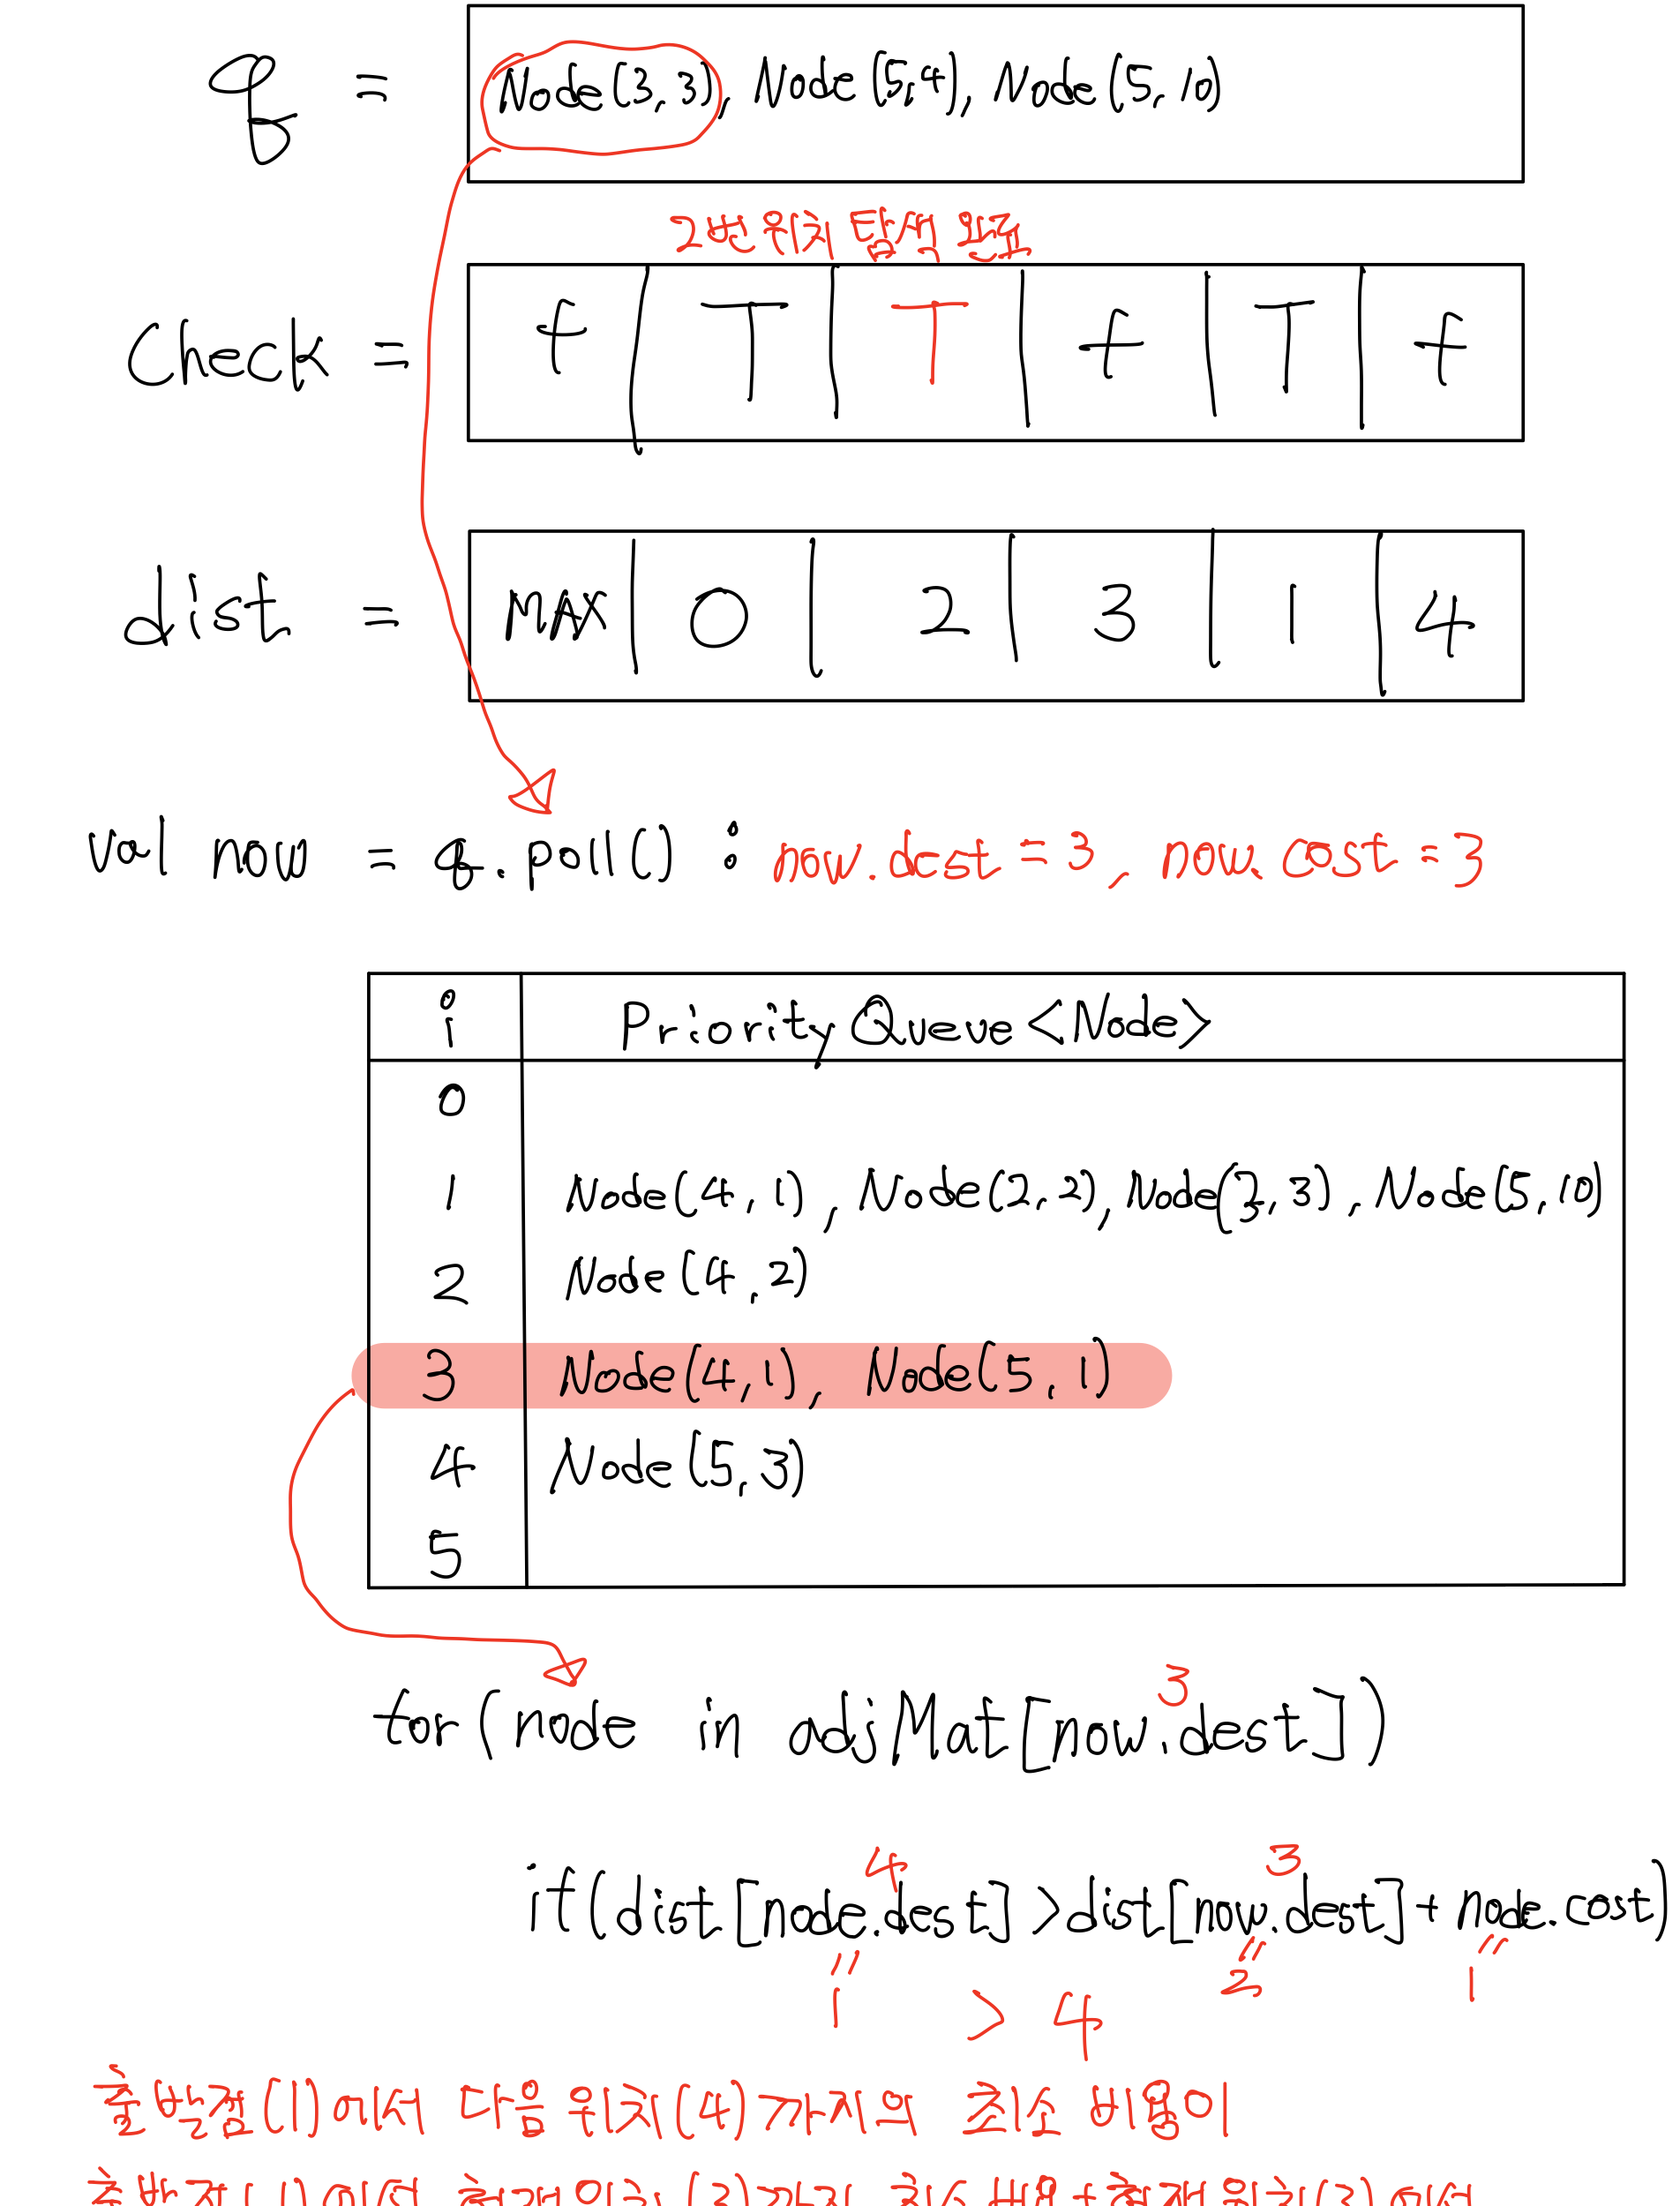 q = Node(3,3), Node(5,4), Node(5,10)
2번 위치 탐색 완료
Check = f T T f T f
dist = MAX 0 2 3 1 4
val now = q.poll() : now.dest = 3, now.cost = 3
i PriorityQueue<Node>
0
1 Node(4,1), Node(2,2), Node(3,3), Node(5,10)
2 Node(4,2)
3 Node(4,1), Node(5,1)
4 Node(5,3)
5
3
for(node in adjMat[now.dest])
4 3
if(dist[node.dest] > dist[now.dest] + node.cost)
" " "
1 > 4 2 1
출발점(1)에서 다음 위치(4)까지의 최소 비용이